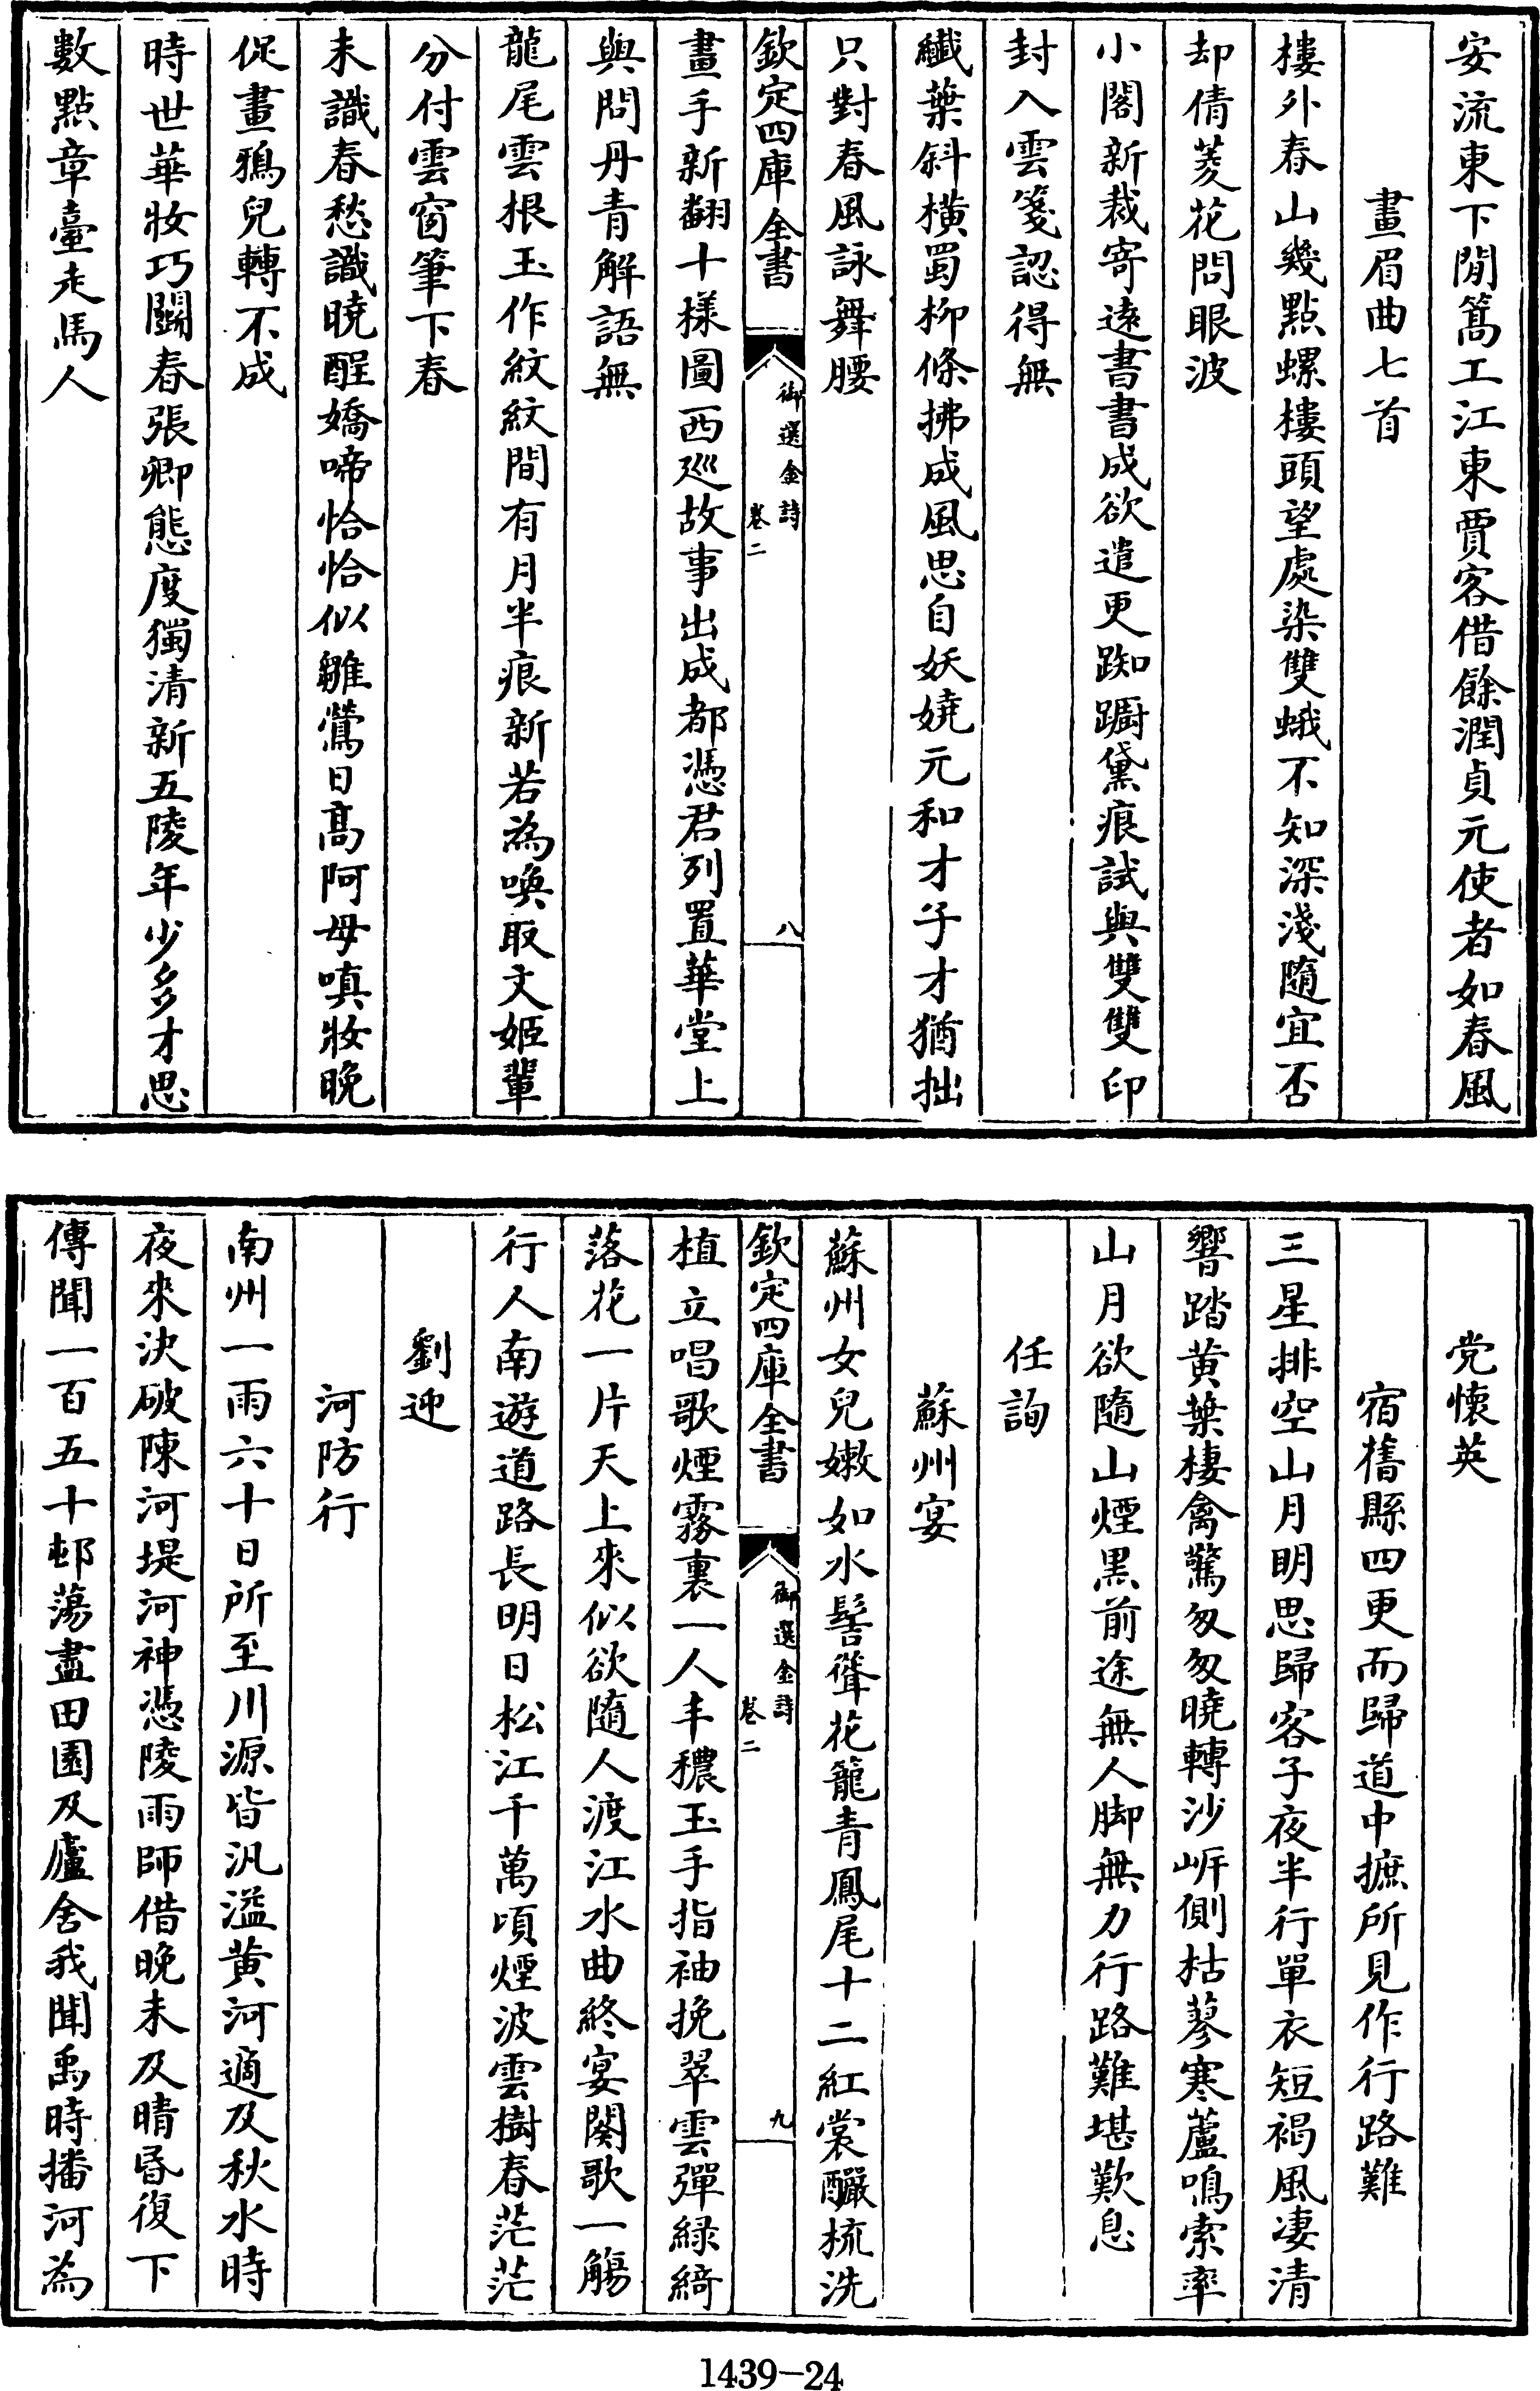 安流東下閒篙工江東賈客借餘潤貞元使者如春風
畫眉曲七首
樓外春山幾點螺樓頭望處染雙蛾不知深淺隨宜否
却倩菱花問眼波
小閣新裁寄逺書書成欲遣更踟躕黛痕試與雙雙印
封入雲箋認得無
纎葉斜橫蜀柳條拂成風思自妖嬈元和才子才猶拙
只對春風詠舞腰
欽定四庫全書
御選金詩
卷二
八
畫手新翻十樣圖西巡故事出成都憑君列置華堂上
與問丹青解語無
龍尾雲根玉作紋紋間有月半痕新若為喚取文姬輩
分付雲窗筆下春
未識春愁識曉酲嬌啼恰恰似雛鶯日髙阿母嗔妝晚
促畫鴉兒轉不成
時世華妝巧鬭春張卿態度獨清新五陵年少多才思
數點章臺走馬人
党懷英
宿舊縣四更而歸道中摭所見作行路難
三星排空山月明思歸客子夜半行單衣短褐風凄清
響踏黄葉棲禽驚匆匆曉轉沙岍側枯蓼寒蘆鳴索率
山月欲隨山煙黑前途無人脚無力行路難堪歎息
任詢
蘇州宴
蘇州女兒嫩如水髻聳花籠青鳳尾十二紅裳釅梳洗
欽定四庫全書
御選金詩
卷二
九
植立唱歌煙霧裏一人丰穠玉手指袖挽翠雲彈緑綺
落花一片天上來似欲隨人渡江水曲終宴闋歌一觴
行人南遊道路長明日松江千萬頃煙波雲樹春茫茫
劉迎
河防行
南州一雨六十日所至川源皆汎溢黄河適及秋水時
夜來決破陳河堤河神憑陵雨師借晚未及晴昬復下
傳聞一百五十邨蕩盡田園及廬舍我聞禹時播河為
1439-24